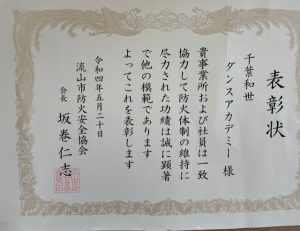 表彰状
千葉和世
ダンスアカデミー 様
貴事業所および社員は一致
協力して防火体制の維持に
尽力された功績は誠に顕著
で他の模範であります
よってこれを表彰します
令和四年五月二十日
流山市防火安全協会
会長 坂巻仁志